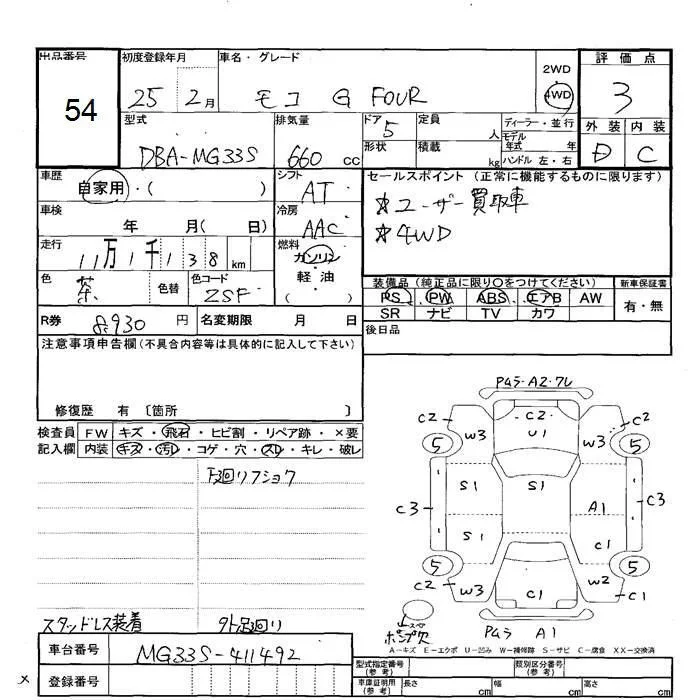 出品番号 初度登録年月 車名・グレード 2WD 評価点
54 25 2月 モコ G FOUR 4WD 3
型式 排気量 ドア 5 定員 人 ディーラー・並行 外装 内装
モデル年式 年
DBA-MG33S 660 cc 形状 積載 kg ハンドル 左・右 D C
車歴 自家用・( ) シフト AT セールスポイント (正常に機能するものに限ります)
☆ユーザー買取車
車検 年 月( 日) 冷房 AAC ☆4WD
走行 11万1千138km 燃料 ガソリン
軽・油
( )
色 茶 色替 色コード ZSF 装備品 (純正品に限り○をつけてください) 新車保証書
PS PW ABS エアB AW 有・無
R券 8,930 円 名変期限 月 日 SR ナビ TV カワ
後日品
注意事項申告欄(不具合内容等は具体的に記入して下さい)
修復歴 有 〔箇所 〕
検査員 FW キズ・飛石・ヒビ割・リペア跡・×要
記入欄 内装 キズ・汚レ・コゲ・穴・スレ・キレ・破レ
下廻リフショク
Pムラ・A2・フレ
C2 C2 C2
W3 U1 W3
5 5
S1 S1
C3 A1 C3
S1 C1
5 5
C2 W3 C1 W2 C1
ポンプ欠
Pムラ A1
スタッドレス装着 外廻リ
A-キズ E-エクボ U-凹み W-補修跡 S-サビ C-腐食 XX-交換済
車台番号 MG33S-411492
型式指定番号(参考) 類別区分番号(参考)
登録番号 車庫証明用(参考) 長さ cm 幅 cm 高さ cm